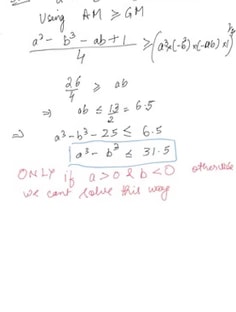 Using AM ≥ GM
a³ - b³ - ab + 1 / 4 ≥ (a³×(-b³)×(-ab)×1)^¼
26/4 ≥ ab
⇒ ab ≤ 13/2 = 6.5
⇒ a³-b³-25 ≤ 6.5
a³-b³ ≤ 31.5
ONLY if a>0 & b<0 otherwise
we cant solve this way